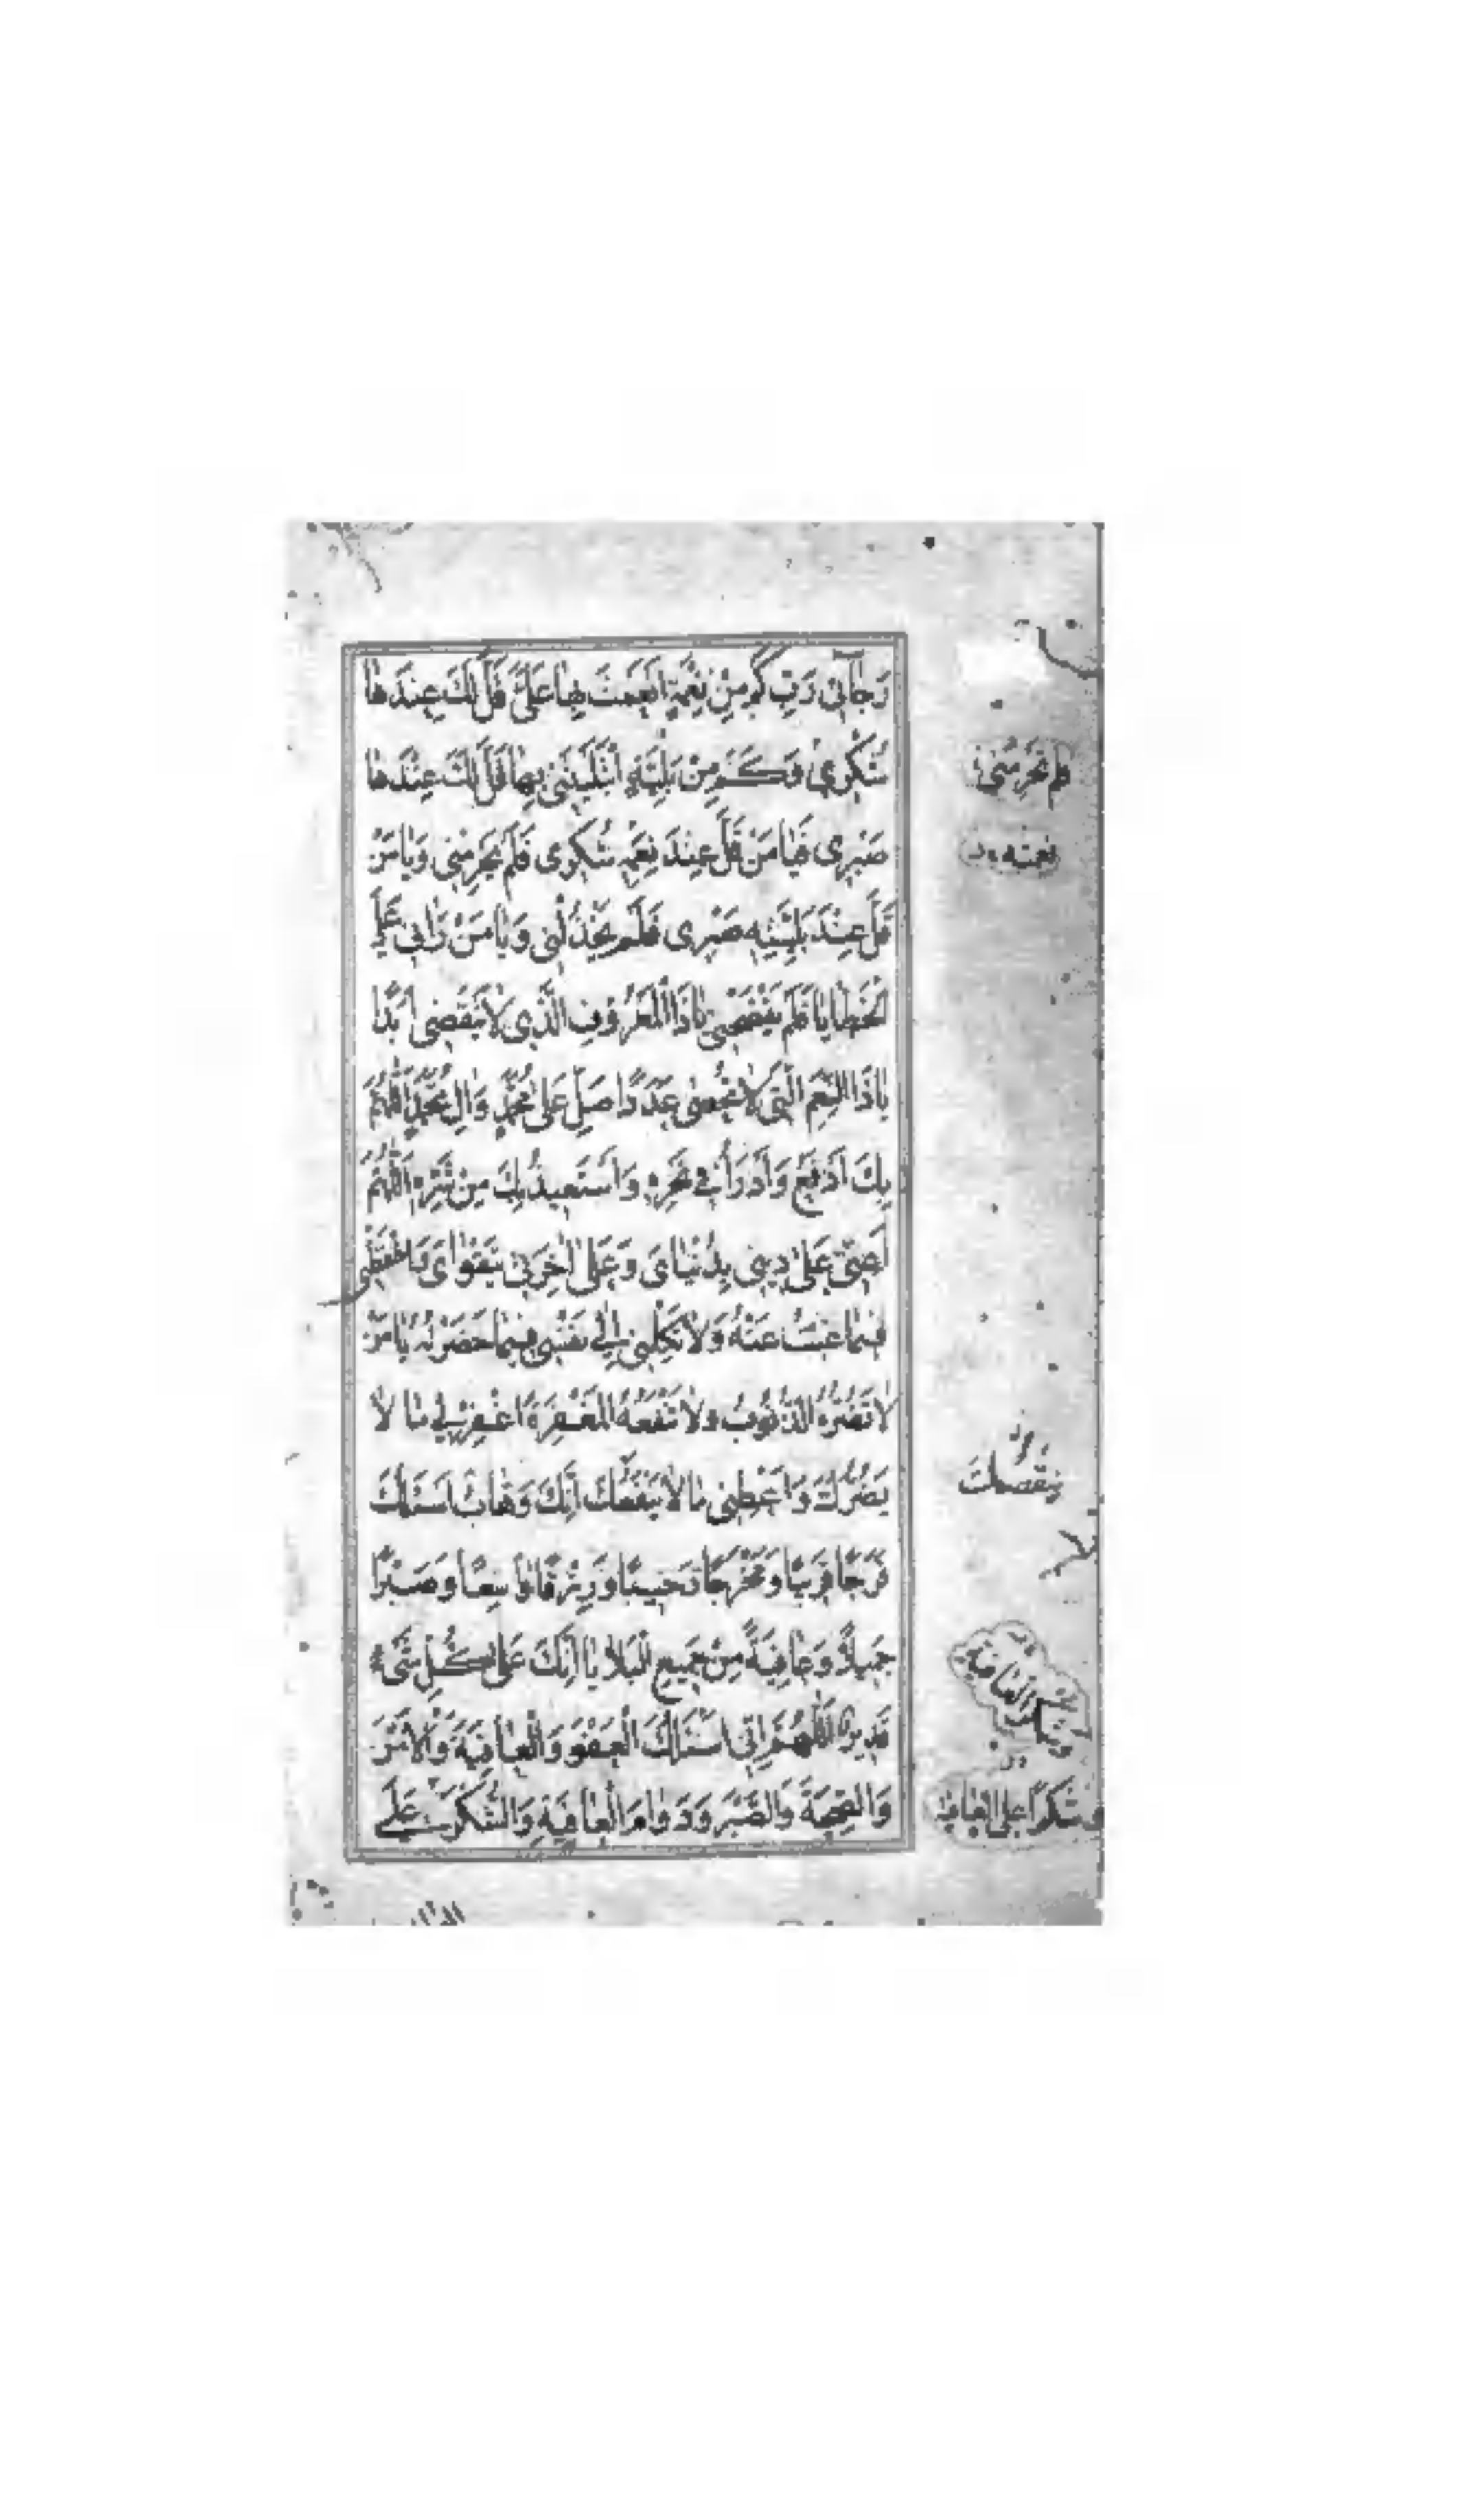 رَجٰآئي رَبِّ كَمْ مِنْ نِعْمَةٍ اَنْعَمْتَ بِهٰا عَلَيَّ قَلَّ لَكَ عِنْدَهٰا
شُكْرِيْ وَكَمْ مِنْ بَلِيَّةٍ ابْتَلَيْتَنِيْ بِهٰا قَلَّ لَكَ عِنْدَهٰا
صَبْرِىْ فَيٰا مَنْ قَلَّ عِنْدَ نِعَمِهِ شُكْرِى فَلَمْ يَحْرِمْنِى وَيٰا مَنْ
قَلَّ عِنْدَ بَلِيَّتِهِ صَبْرِى فَلَمْ يَخْذُلْنِى وَيٰا مَنْ رَاٰنِى عَلَى
الْخَطٰايٰا فَلَمْ يَفْضَحْنِى يٰا ذَا الْمَعْرُوْفِ الَّذِى لٰا يَنْقَضِى اَبَدًا
يٰا ذَا النِّعَمِ الَّتِى لٰا تُحْصٰى عَدَدًا صَلِّ عَلٰى مُحَمَّدٍ وَاٰلِ مُحَمَّدٍ اَللّٰهُمَّ
بِكَ اَدْفَعُ وَاَدْرَأُ فِى نَحْرِهِ وَاَسْتَعِيذُ بِكَ مِنْ شَرِّهِ اَللّٰهُمَّ
اَعِنِّى عَلٰى دِيْنِى بِدُنْيٰاىَ وَعَلٰى اٰخِرَتِى بِتَقْوٰاىَ وَاحْفَظْنِى
فِيْمٰا غِبْتُ عَنْهُ وَلٰا تَكِلْنِى اِلٰى نَفْسِى فِيْمٰا حَضَرْتُهُ يٰا مَنْ
لٰا تَضُرُّهُ الذُّنُوبُ وَلٰا تَنْفَعُهُ الْمَغْفِرَةُ اغْفِرْ لِى مٰا لٰا
يَضُرُّكَ وَاَعْطِنِى مٰا لٰا يَنْفَعُكَ اِنَّكَ وَهّٰابٌ اَسْئَلُكَ
فَرَجًا قَرِيْبًا وَمَخْرَجًا رَحِيبًا وَرِزْقًا وٰاسِعًا وَصَبْرًا
جَمِيلًا وَعٰافِيَةً مِنْ جَمِيعِ الْبَلٰايٰا اِنَّكَ عَلٰى كُلِّ شَىْءٍ
قَدِيرٌ اَللّٰهُمَّ اِنِّى اَسْئَلُكَ الْعَفْوَ وَالْعٰافِيَةَ وَالْاَمْنَ
وَالصِّحَةَ وَالصَّبْرَ وَدَوٰامَ الْعٰافِيَةِ وَالشُّكْرَ عَلَى
فلم تحرمنى
نعمته
تنقصك
وشكر العافية
وشكرًا على العافية